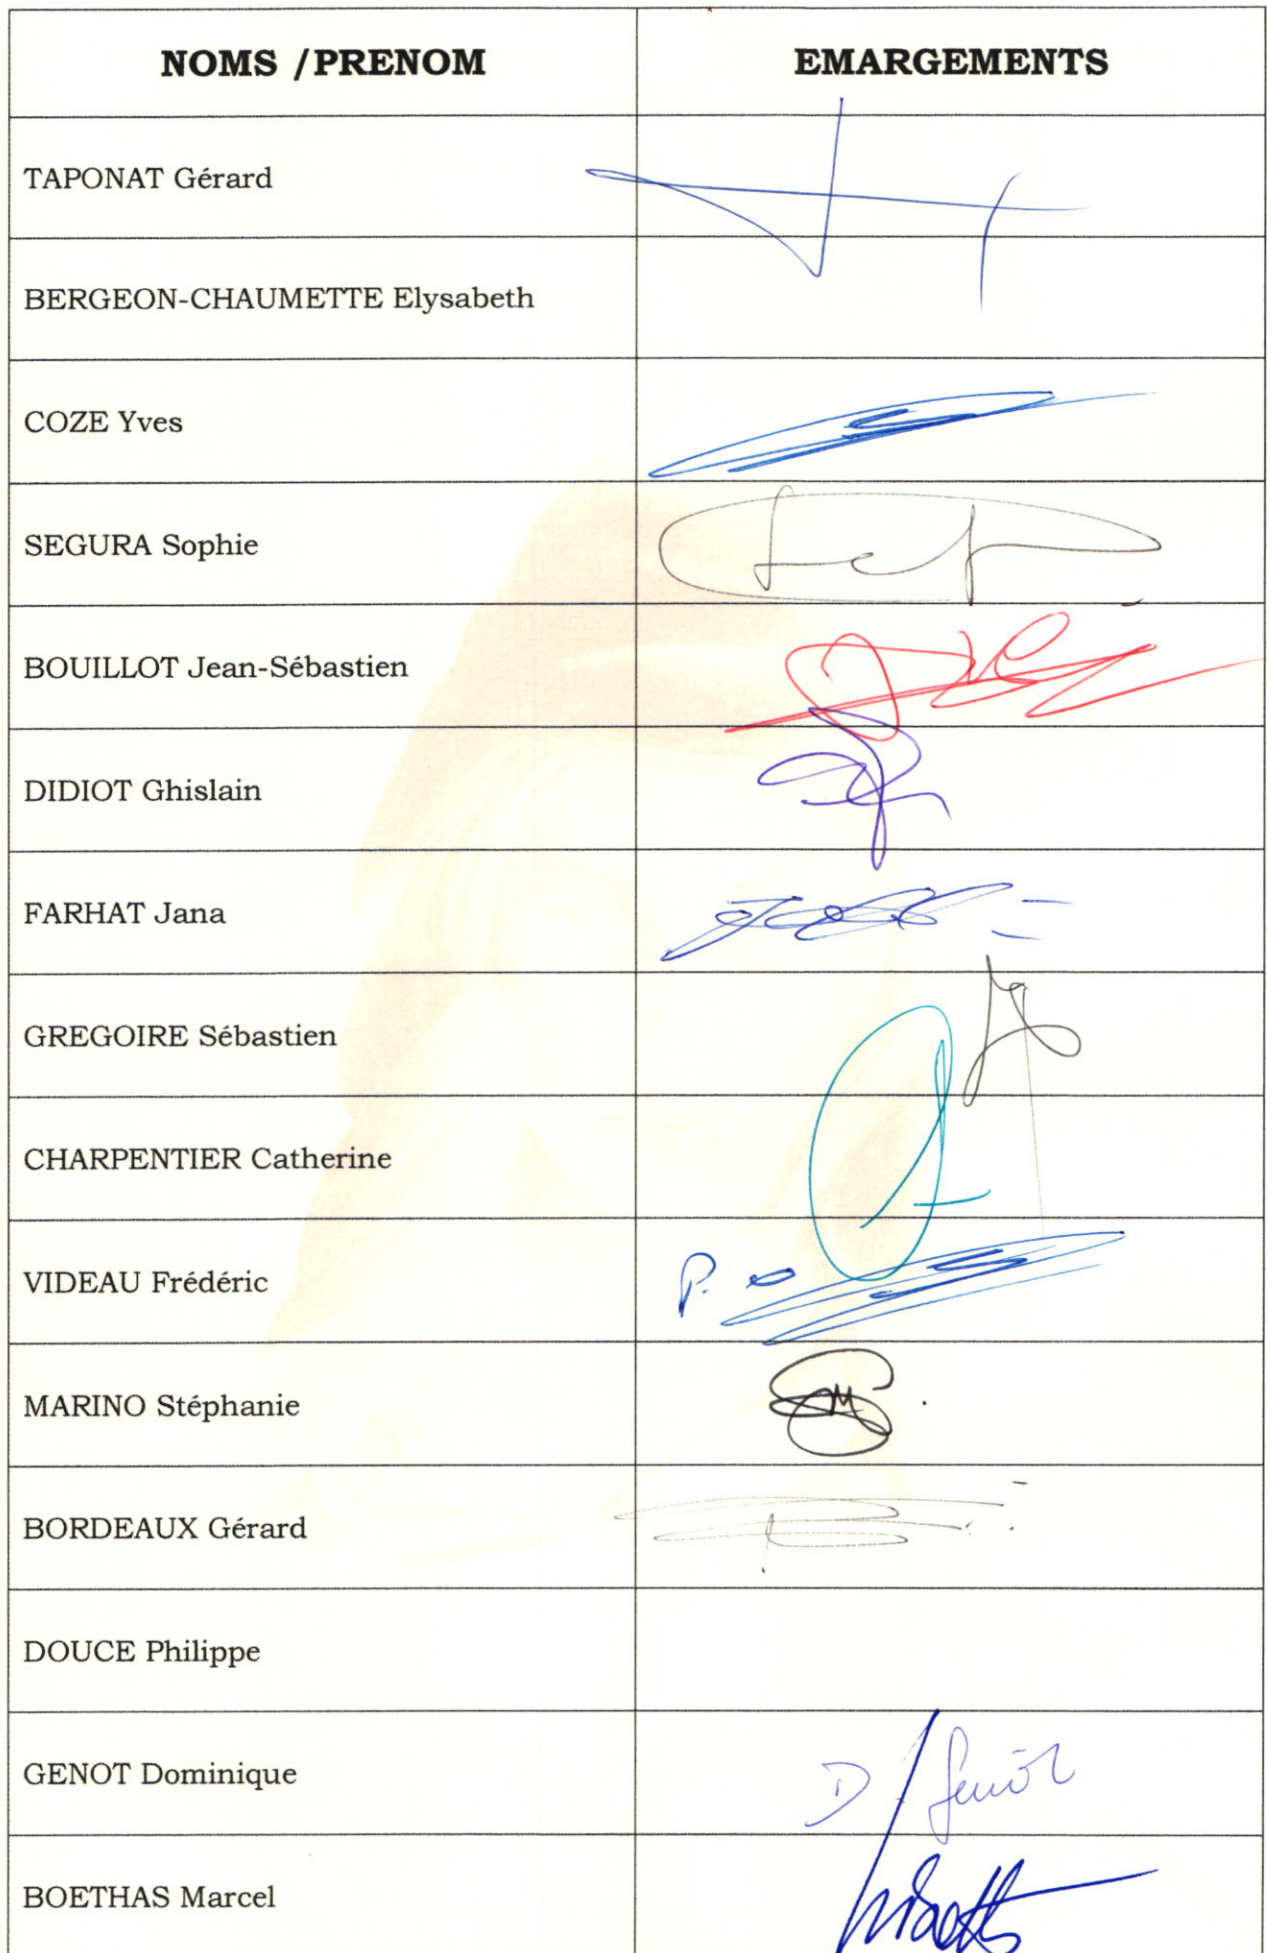 NOMS /PRENOM
EMARGEMENTS
TAPONAT Gérard
BERGEON-CHAUMETTE Elysabeth
COZE Yves
SEGURA Sophie
BOUILLOT Jean-Sébastien
DIDIOT Ghislain
FARHAT Jana
GREGOIRE Sébastien
CHARPENTIER Catherine
VIDEAU Frédéric
P.
MARINO Stéphanie
BORDEAUX Gérard
DOUCE Philippe
GENOT Dominique
D Genot
BOETHAS Marcel